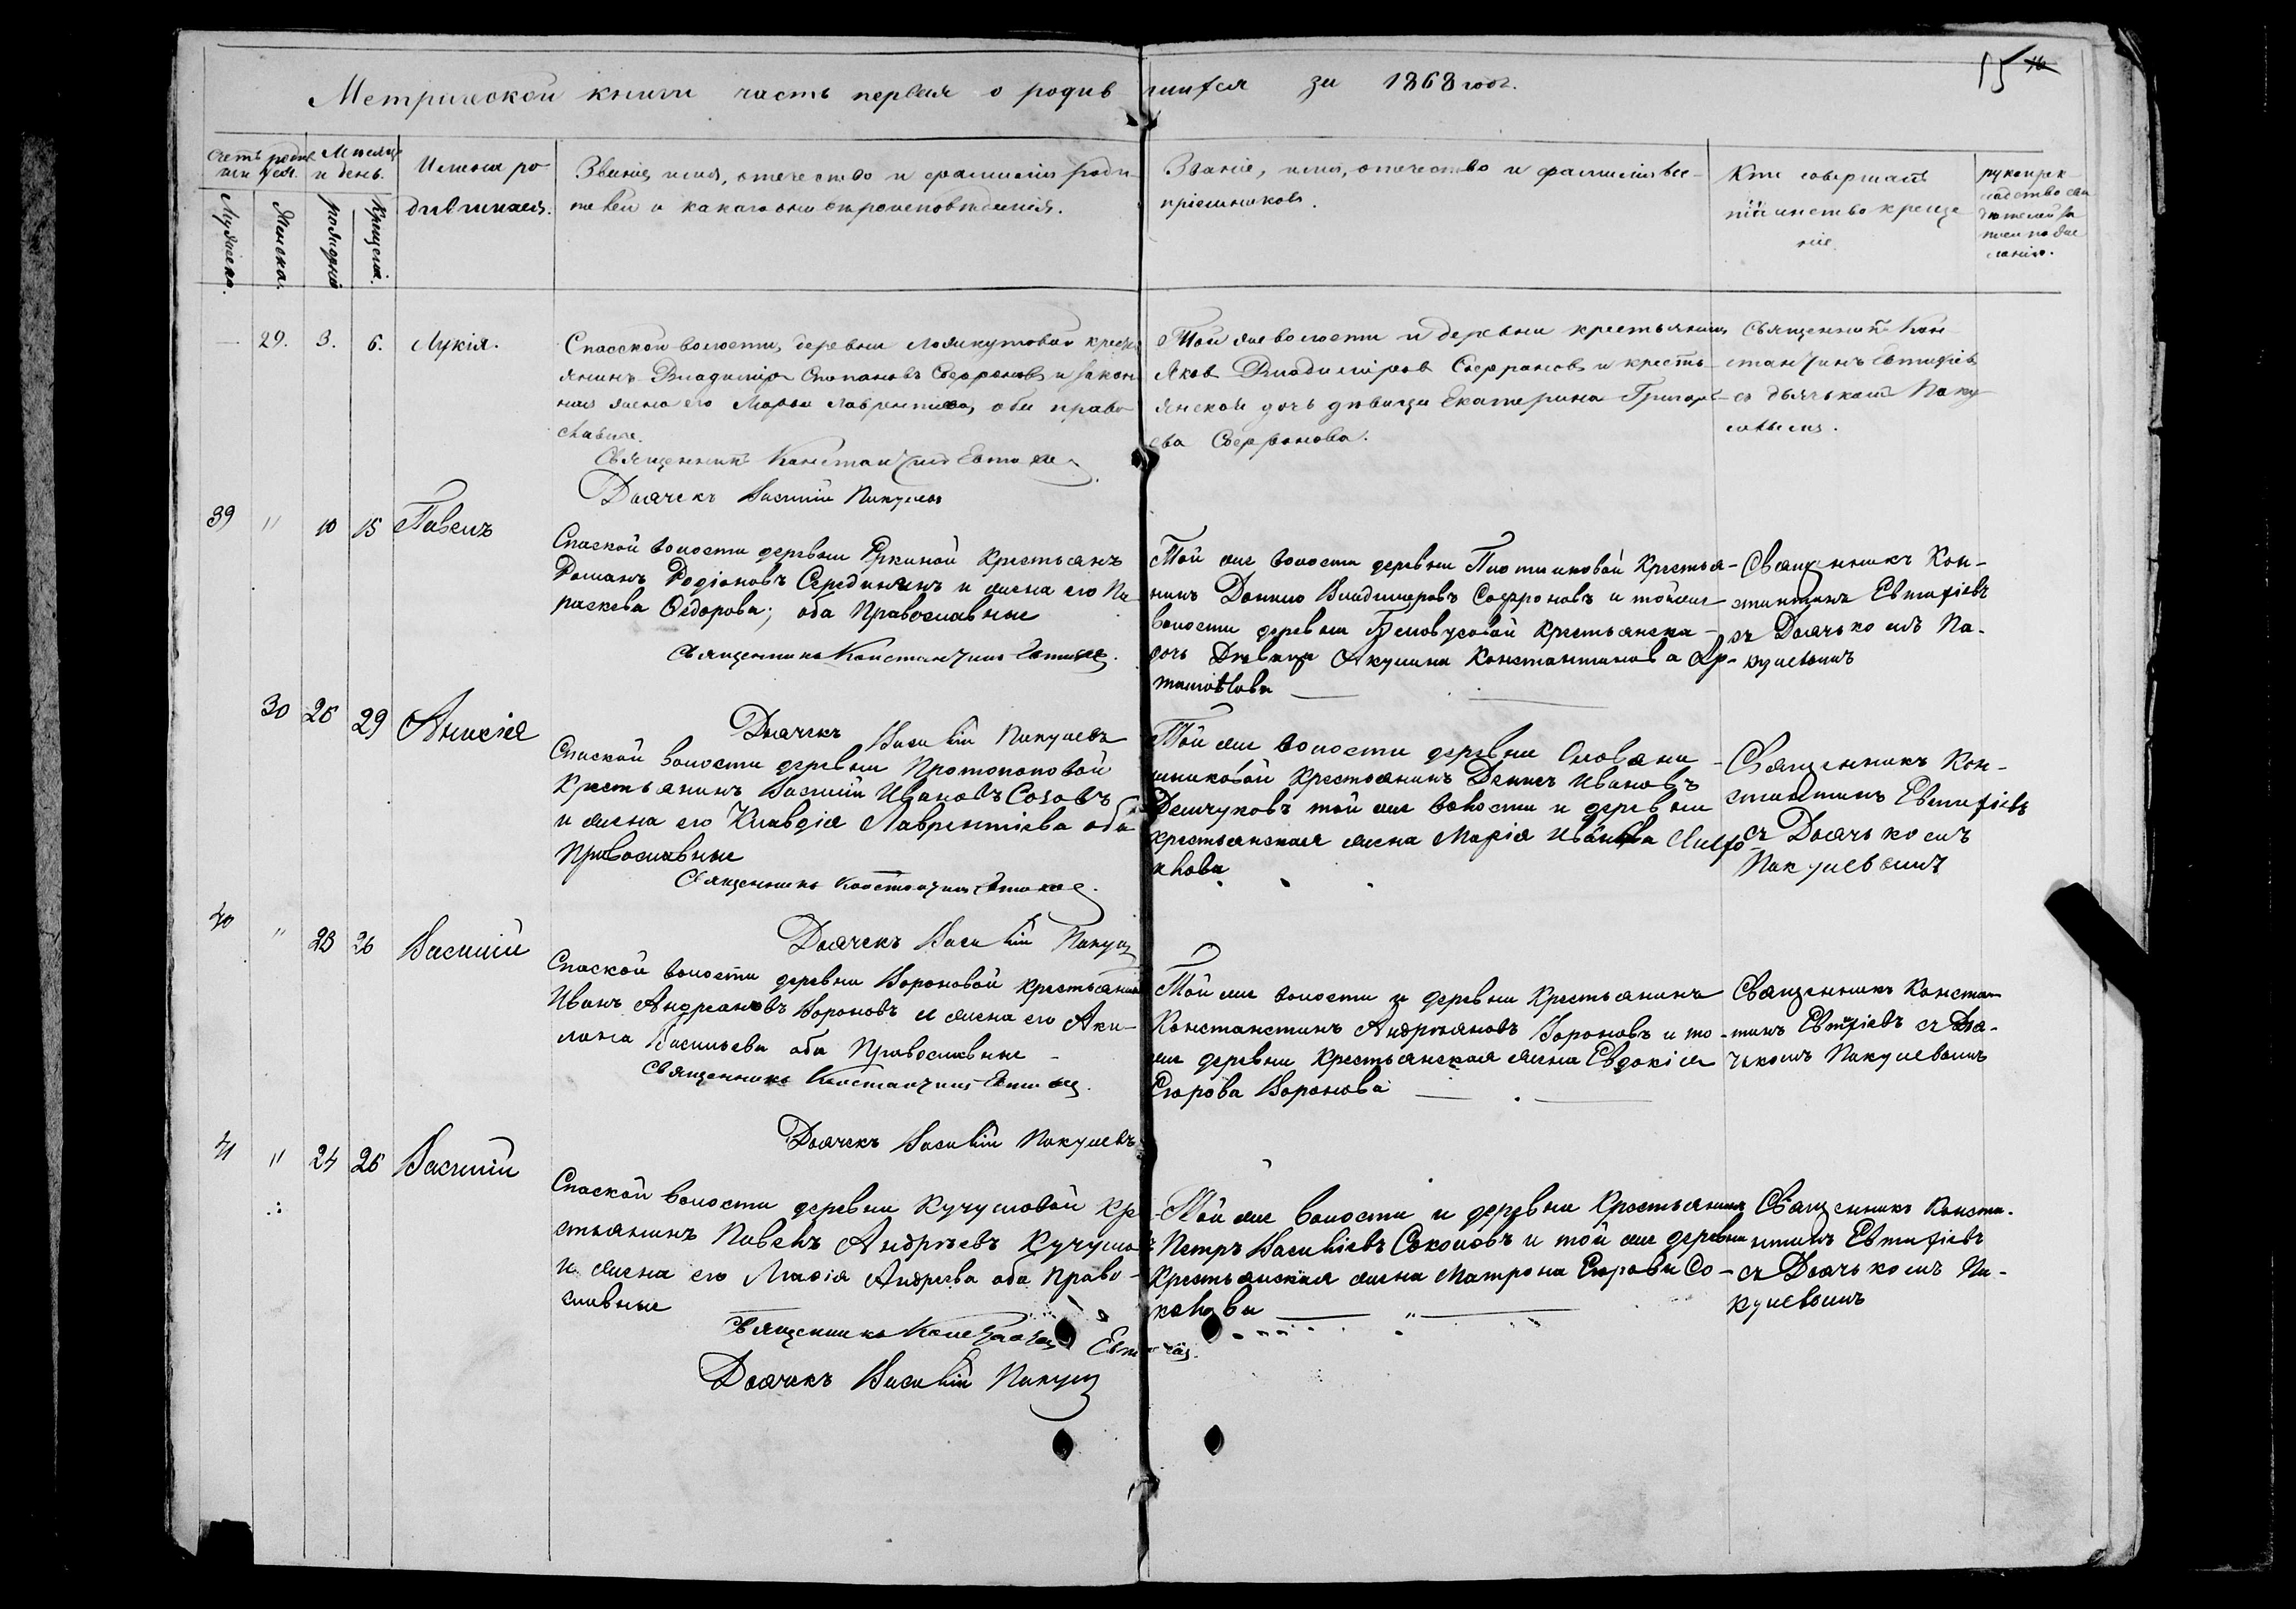 15
Метрической книги часть первая о родившихся за 1868 годъ.
Счетъ родившихся.
Мѣсяцъ и день.
Имена родившихся.
Званіе, имя, отечество и фамилія родителей и какого они вѣроисповѣданія.
Званіе, имя, отечество и фамилія воспріемниковъ.
Кто совершалъ таинство крещенія.
Мужеска.
Женска.
рожденія
крещенія.
29. 3. 6. Лукія.
Спасской волости, деревни крестьянинъ Владиміръ Степановъ Сафроновъ и законная жена его Марья Лаврентьева, оба православные.
Священникъ Константинъ Евтихіевъ
Дьячекъ Василій Пакулевъ
Той же волости и деревни крестьянинъ
Яковъ Владиміровъ Сафроновъ и крестьянской дочь дѣвица Екатерина Григорьева Сафронова.
Священникъ Константинъ Евтихіевъ съ дьячькомъ Пакулевымъ.
39 " 10 15 Павелъ
Спаской волости деревни крестьянъ
Романъ Родіоновъ Серединъ и жена его Параскева Ѳедорова; оба Православные
Священникъ Константинъ Евтихіевъ.
Дьячекъ Василій Пакулевъ
Той же волости деревни Плотниковой Крестьянинъ Данило Владимировъ Сафроновъ и той же
волости деревни Бѣлоусовой Крестьянска
дочь Дѣвица Акулина Константинова
Священникъ Константинъ Евтихіевъ
съ Дьячькомъ Пакулевымъ
30 26 29 Анисія
Спаской волости деревни Протопоповой
Крестьянинъ Василій Ивановъ Созовъ
и жена его Клавдія Лаврентіева оба
Православные
Священникъ Константинъ Евтихіевъ.
Дьячекъ Василій Пакулевъ
Той же волости деревни
Крестьянинъ Денисъ Ивановъ
Демчуковъ той же волости и деревни
крестьянская жена Марія Иванова
Священникъ Константинъ Евтихіевъ
съ Дьячькомъ
Пакулевымъ
40 " 23 26 Василій
Спаской волости деревни Вороновой крестьянинъ
Иванъ Андреановъ Вороновъ и жена его Акилина Васильева оба Православные
Священникъ Константинъ Евтихіевъ.
Дьячекъ Василій Пакулевъ
Той же волости и деревни Крестьянинъ
Константинъ Андреяновъ Вороновъ и тоже деревни Крестьянская жена Евдокія
Егорова Воронова
Священникъ Константинъ Евтихіевъ съ Дьячекомъ Пакулевымъ
41 " 24 26 Василій
Спаской волости деревни Кучумовой Крестьянинъ Павелъ Андрѣевъ Кучумовъ
и жена его Марія Андреева оба Православные
Священникъ Константинъ Евтихіевъ.
Дьячекъ Василій Пакулевъ
Той же волости и деревни Крестьянинъ
Петръ Василіевъ Соколовъ и той же деревни
Крестьянская жена Матрона Егорова Соколова
Священникъ Константинъ Евтихіевъ
съ Дьячькомъ Пакулевымъ